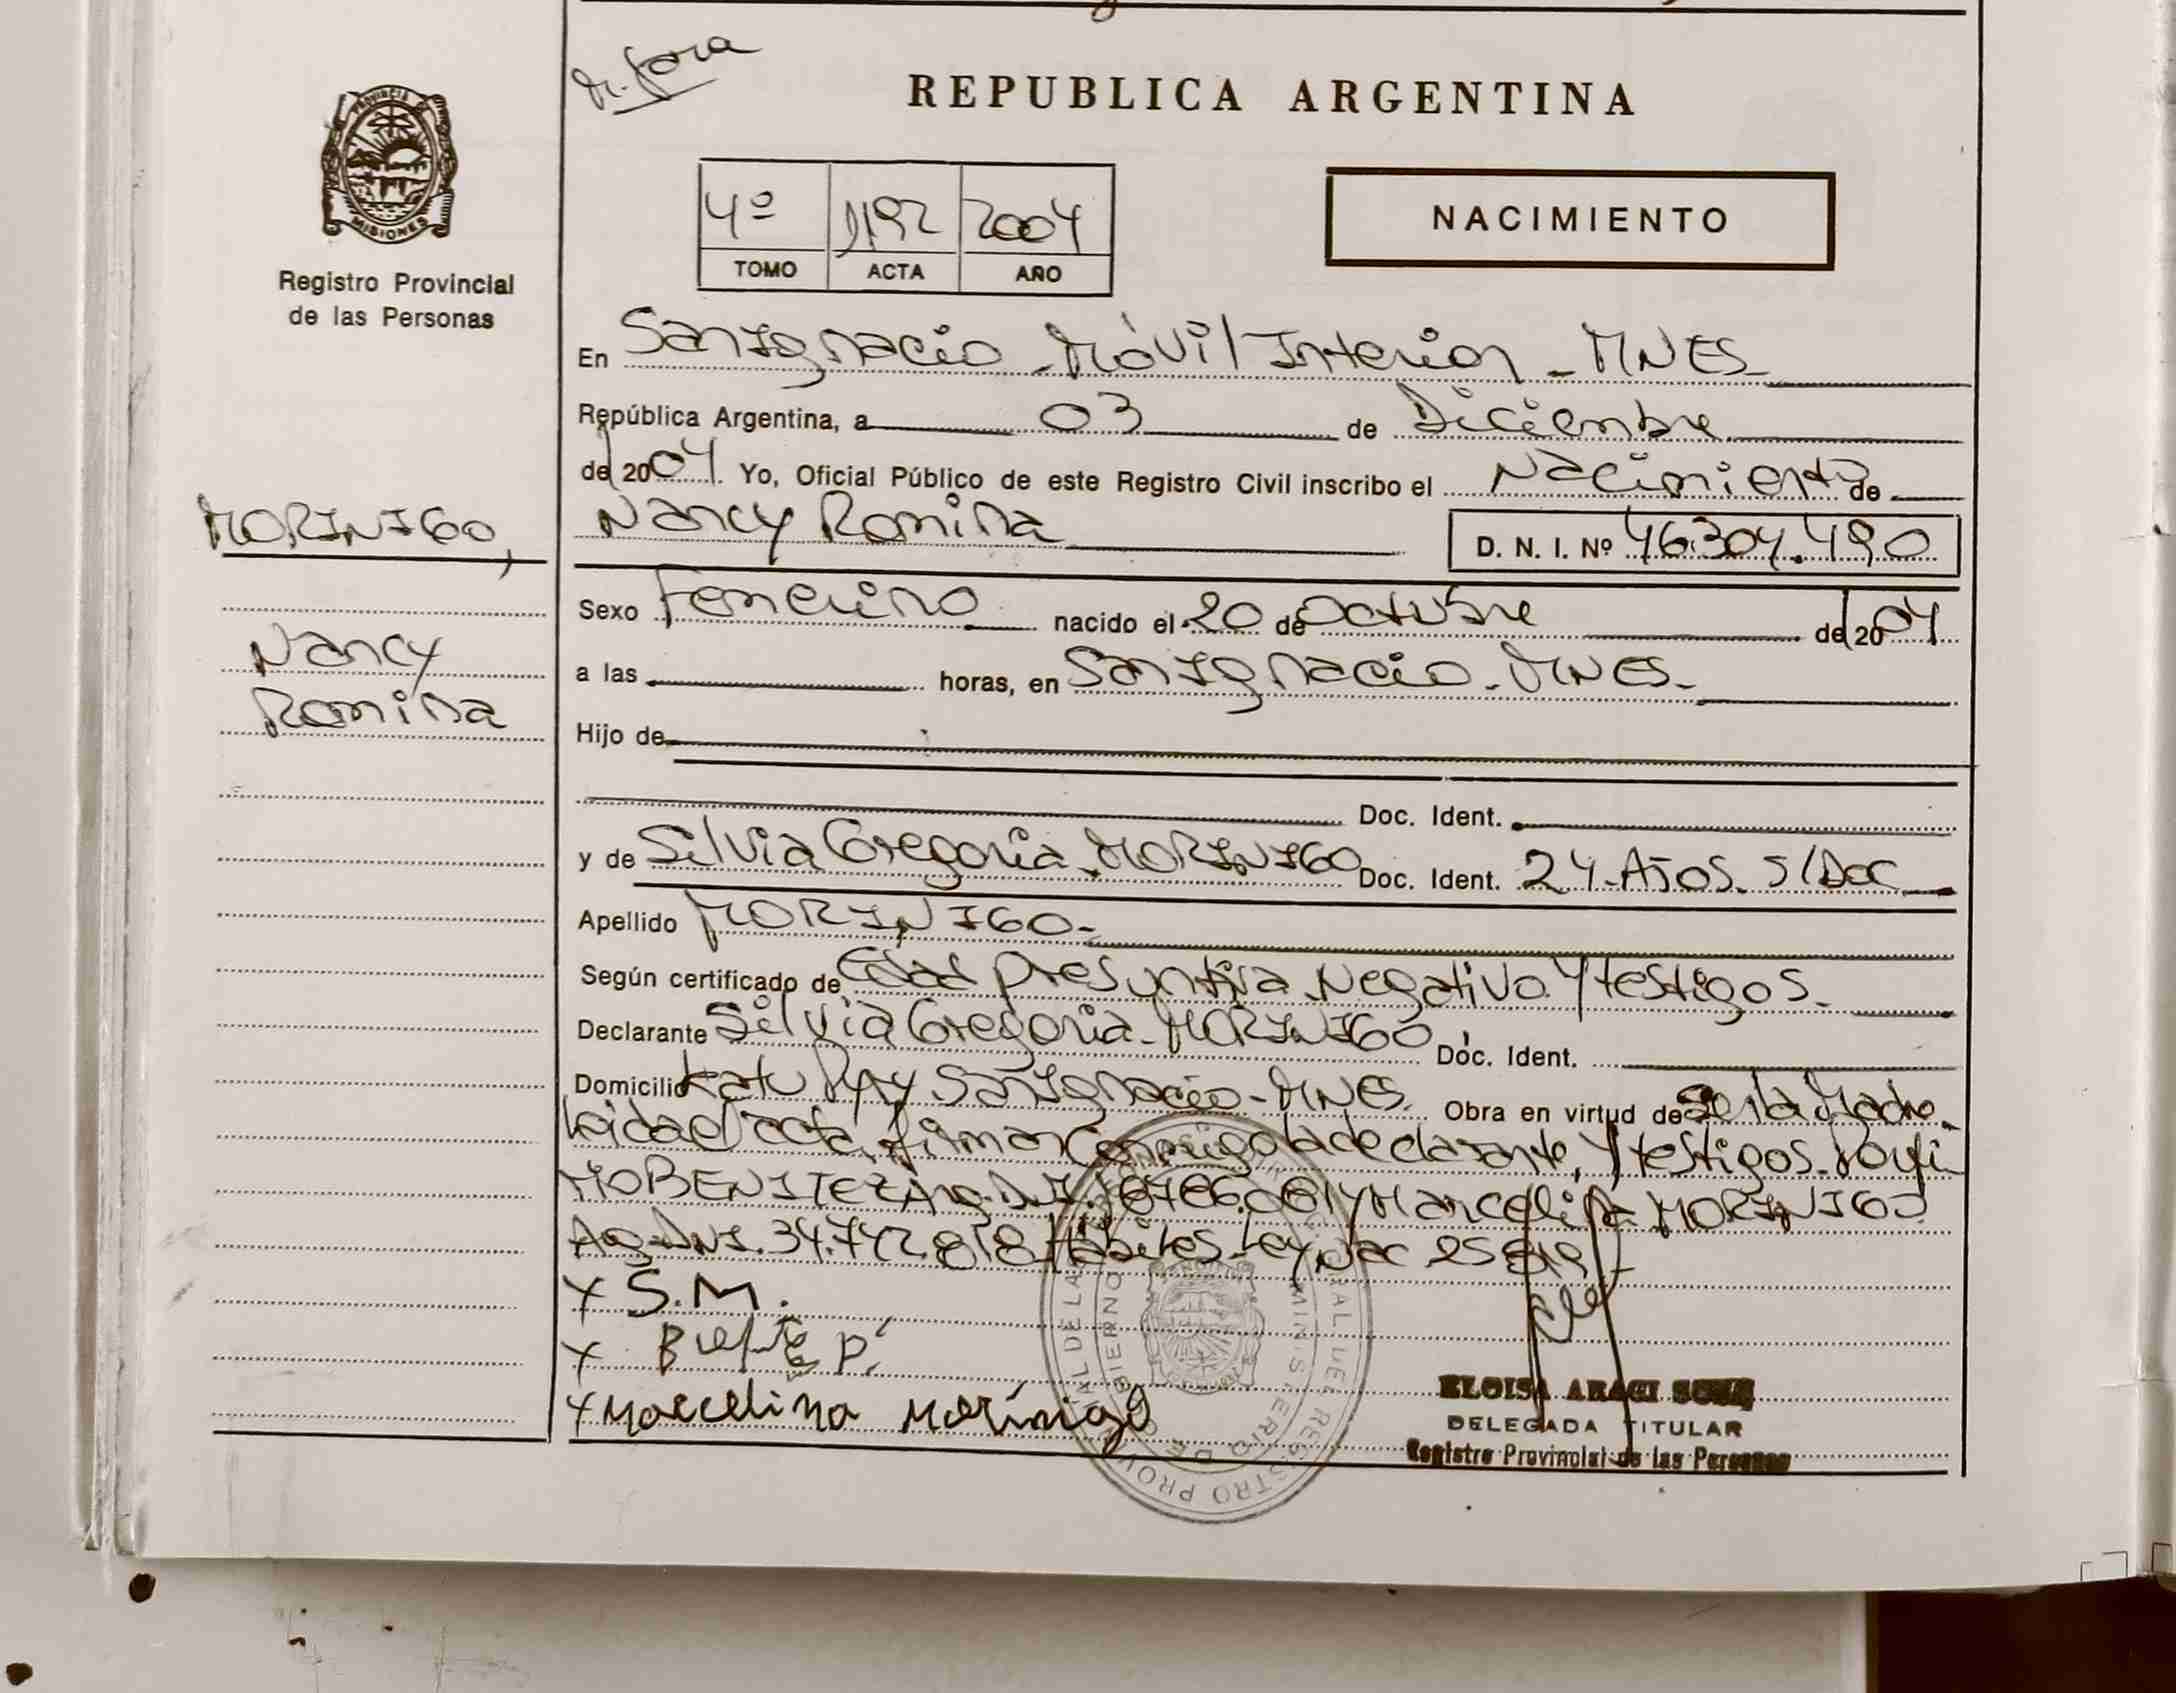 Dr. fora
REPUBLICA ARGENTINA
PROVINCIA DE MISIONES
Registro Provincial
de las Personas
4º 1192 2004
TOMO ACTA AÑO
NACIMIENTO
En San Ignacio - Móvil Interior - MNES
República Argentina, a 03 de Diciembre
de 2004 Yo, Oficial Público de este Registro Civil inscribo el Nacimiento de
MORINIGO, Nancy Romina D. N. I. Nº 46.304.490
Sexo Femenino nacido el 20 de Octubre de 2004
Nancy
Romina
a las horas, en San Ignacio - MNES -
Hijo de
Doc. Ident.
y de Silvia Gregoria MORINIGO Doc. Ident. 24 Años. S/Doc
Apellido MORINIGO -
Según certificado de Edad Presuntiva Negativo Y testigos.
Declarante Silvia Gregoria MORINIGO Doc. Ident.
Domicilio Katu Pyry San Ignacio - MNES. Obra en virtud de Ser la Madre.
Leida el acta, firman Conmigo la declarante, Y testigos. Porfi
MO BENITEZ Arg. DNI. Y Marcelina MORINIGO
Ag. DNI. 34.742.818 Hábiles. Ley Nac 25819 -
X S.M.
X P.
X Marcelina Morínigo
ELOISA
DELEGADA TITULAR
Registro Provincial de las Personas